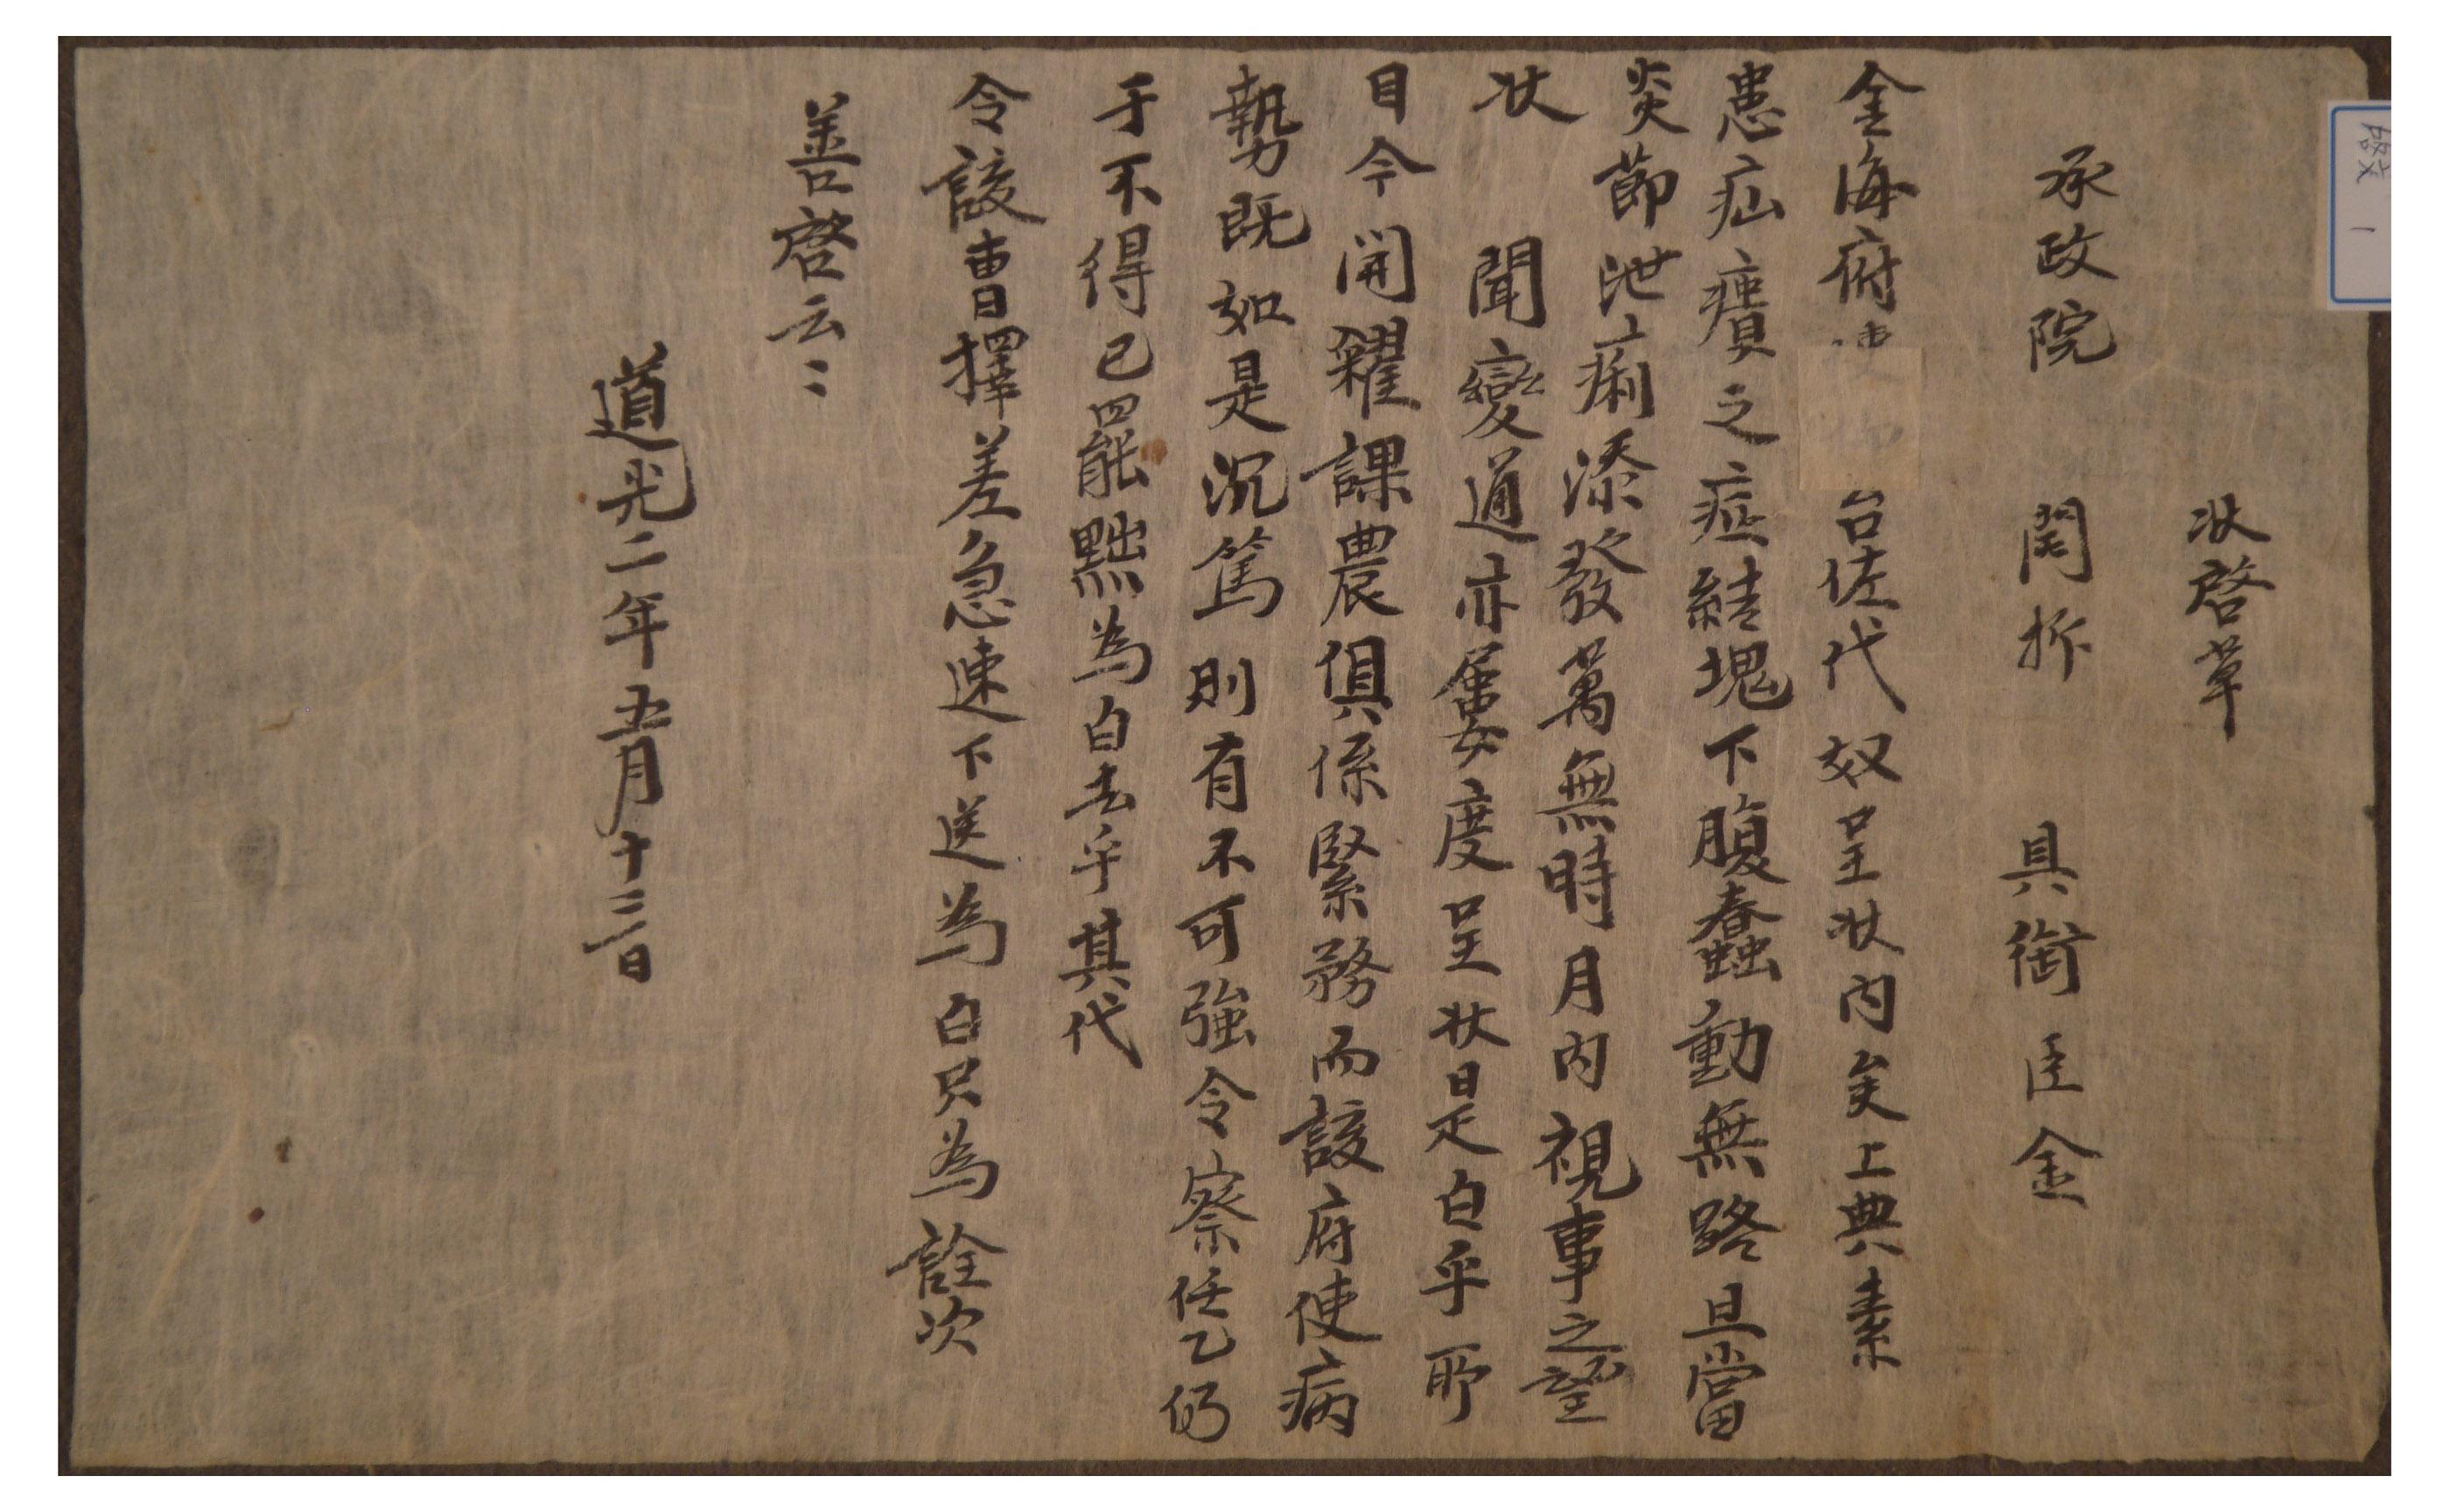 啓 1
狀啓草
承政院 開拆 具銜臣金
金海府使 台佐代奴呈狀內矣上典素
患疝㿉之症結塊下腹蠢動無路且當
炎節泄痢添發萬無時月內視事之望
狀 聞變通亦屢度呈狀是白乎所
目今開糴課農俱係緊務而該府使病
勢既如是沉篤則有不可強令察任乙仍
于不得已罷黜為白去乎其代
令該曹擇差急速下送為白只為詮次
善啓云〻
道光二年五月十三日